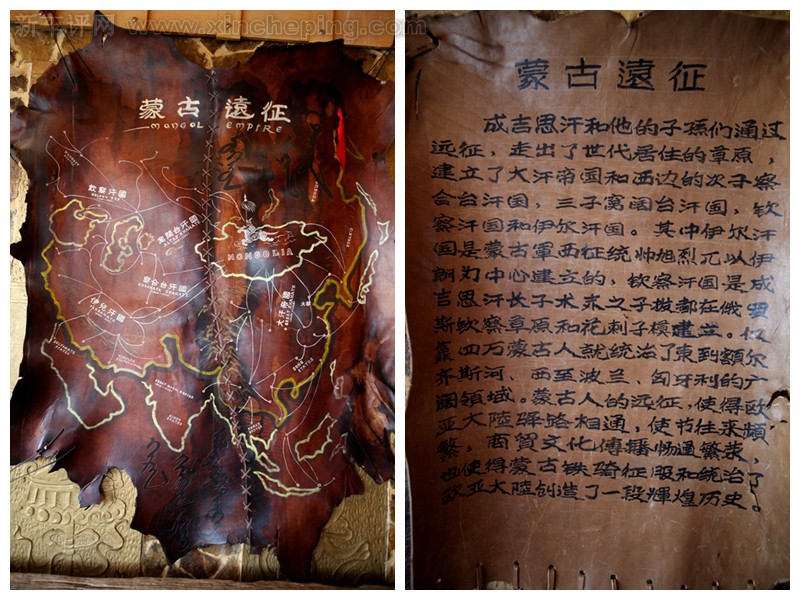 新车评网 www.xincheping.com
蒙古遠征
MONGOL EMPIRE
欽察汗國
窩闊台汗國
MONGOLIA
察合台汗國
伊兒汗國
大汗帝國
蒙古遠征
成吉思汗和他的子孫们通过
远征，走出了世代居住的草原，
建立了大汗帝国和西边的次子察
合台汗国，三子窝阔台汗国，钦
察汗国和伊尔汗国。其中伊尔汗
国是蒙古軍西征统帅旭烈兀以伊
朗为中心建立的，钦察汗国是成
吉思汗长子术赤之子拔都在俄罗
斯钦察草原和花剌子模建立。仅
靠四万蒙古人就统治了東到額尔
齐斯河、西至波兰、匈牙利的广
阔領域。蒙古人的远征，使得欧
亚大陸驿路相通，使节往来頻
繁，商貿文化傳播畅通繁荣，
也使得蒙古铁骑征服和统治了
欧亚大陸创造了一段輝煌历史。